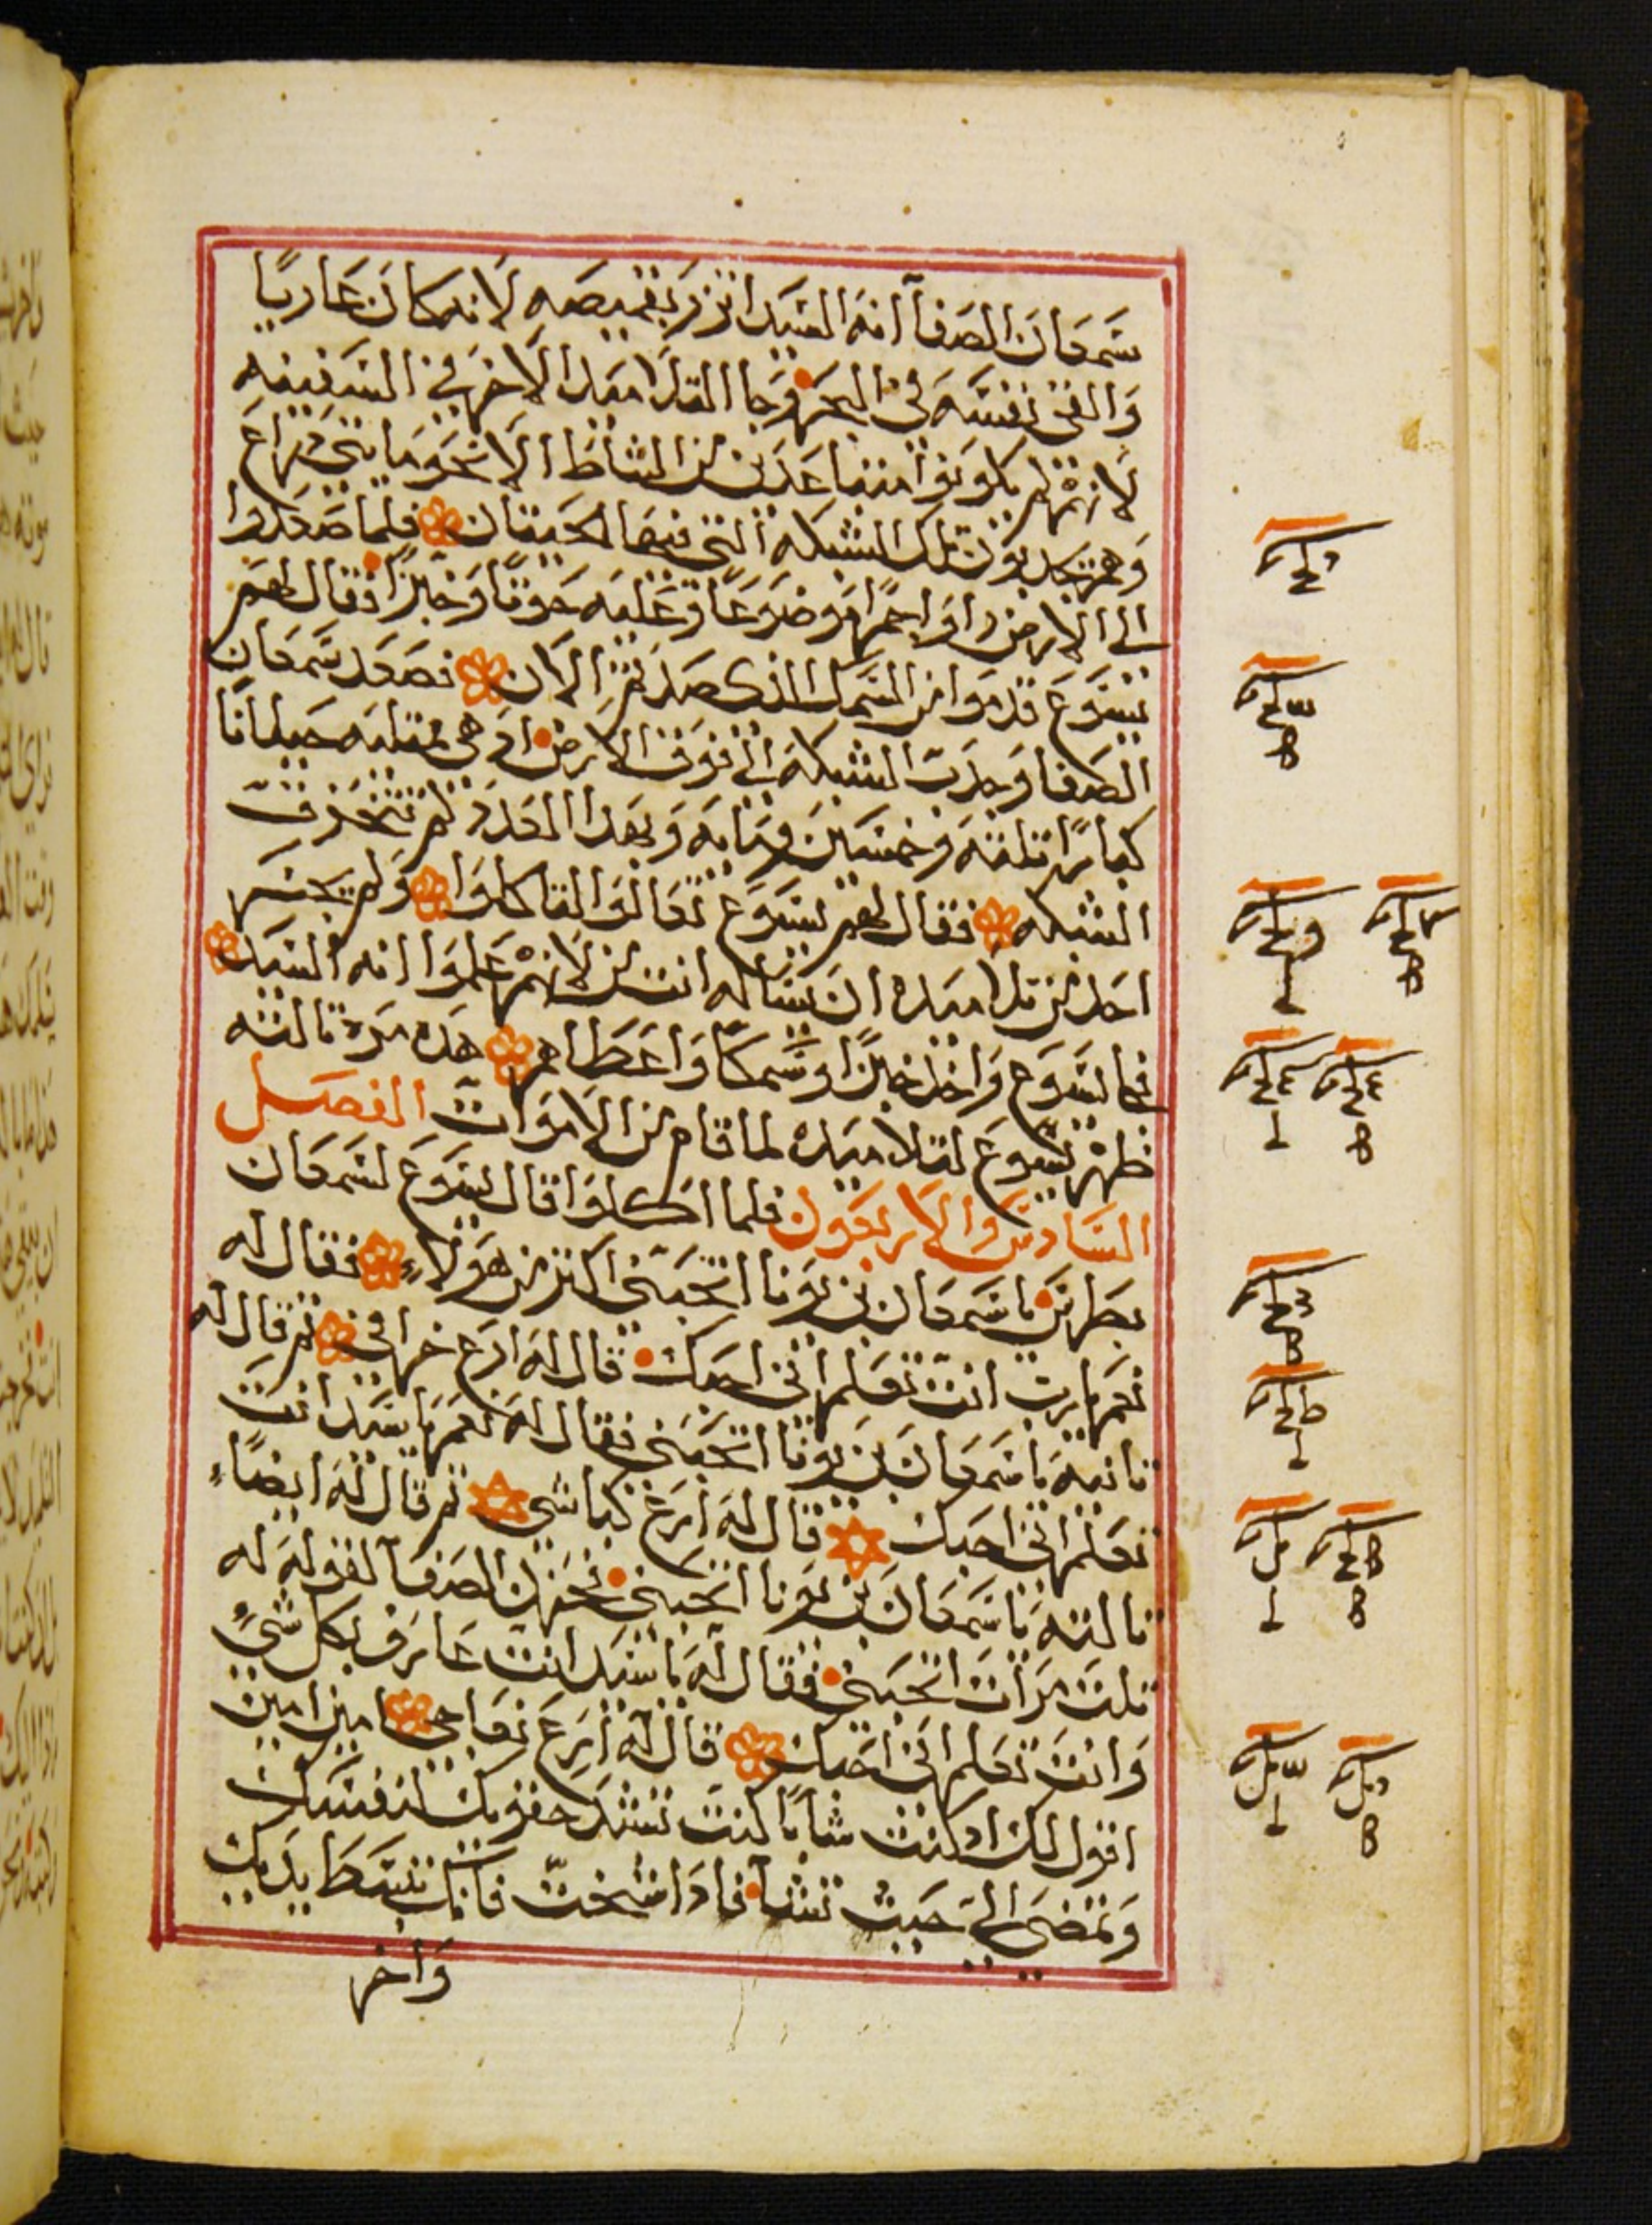 سمعان الصفا انه السيد اتزر بقميصه لانه كان عاريا
والقى نفسه في البحر وجا التلاميد الاخر في السفينه
لانهم لم يكونوا متباعدين من الشاطا الا نحو مايتي دراع
وهم يجدبون تلك الشبكه التي فيها الحيتان فلما صعدوا
الى الارض راوا جمرا موضوعا وعليه حوتا وخبزا فقال لهم
يسوع قدموا من السمك الذي صدتم الان فصعد سمعان
الصفا وجدب الشبكه الى فوق الارض اد هي ممتليه حيتانا
كبارا تلتة وخمسين ومايه وبهدا العدد لم تتخرق
الشبكه فقال لهم يسوع تعالوا لتاكلوا ولم يجسر
احد من تلاميده ان يساله انت من لانهم علموا انه السيد
فجا يسوع واخد خبزا وسمكا واعطاهم هده مرة تالته
ظهر يسوع لتلاميده لما قام من الاموات الفصل
السادس والاربعون فلما اكلوا قال يسوع لسمعان
بطرس يا سمعان بن يونا اتحبني اكتر من هولاء فقال له
نعم يا رب انت تعلم انى احبك قال له ارع خرافي تم قال له
تانية يا سمعان بن يونا اتحبني فقال له نعم يا سيد انت
تعلم انى احبك قال له ارع كباشي تم قال له ايضا
تالتة يا سمعان بن يونا اتحبني فحزن الصفا لقوله له
تلت مرات اتحبني فقال له يا سيد انت عارف بكل شي
وانت تعلم انى احبك قال له ارع نعاجي امين امين
اقول لك اد كنت شابا كنت تشد حقويك لنفسك
وتمضى الى حيث تشا فادا شخت فانك تبسط يديك
واخر